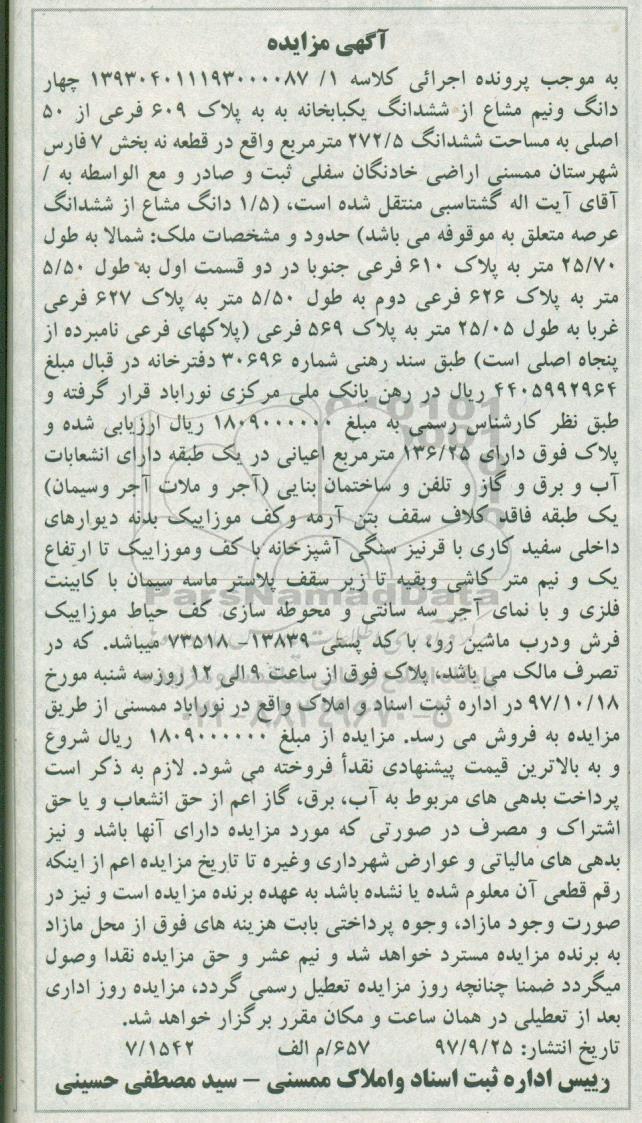 آگهی مزایده
به موجب پرونده اجرائی کلاسه ۱/ ۱۳۹۳۰۴۰۱۱۱۹۳۰۰۰۰۸۷ چهار
دانگ ونیم مشاع از ششدانگ یکبابخانه به به پلاک ۶۰۹ فرعی از ۵۰
اصلی به مساحت ششدانگ ۲۷۲/۵ مترمربع واقع در قطعه نه بخش ۷ فارس
شهرستان ممسنی اراضی خادنگان سفلی ثبت و صادر و مع الواسطه به /
آقای آیت اله گشتاسبی منتقل شده است، (۱/۵ دانگ مشاع از ششدانگ
عرصه متعلق به موقوفه می باشد) حدود و مشخصات ملک: شمالا به طول
۲۵/۷۰ متر به پلاک ۶۱۰ فرعی جنوبا در دو قسمت اول به طول ۵/۵۰
متر به پلاک ۶۲۶ فرعی دوم به طول ۵/۵۰ متر به پلاک ۶۲۷ فرعی
غربا به طول ۲۵/۰۵ متر به پلاک ۵۶۹ فرعی (پلاکهای فرعی نامبرده از
پنجاه اصلی است) طبق سند رهنی شماره ۳۰۶۹۶ دفترخانه در قبال مبلغ
۴۴۰۵۹۹۲۹۶۴ ریال در رهن بانک ملی مرکزی نوراباد قرار گرفته و
طبق نظر کارشناس رسمی به مبلغ ۱۸۰۹۰۰۰۰۰۰ ریال ارزیابی شده و
پلاک فوق دارای ۱۳۶/۲۵ مترمربع اعیانی در یک طبقه دارای انشعابات
آب و برق و گاز و تلفن و ساختمان بنایی (آجر و ملات آجر وسیمان)
یک طبقه فاقد کلاف سقف بتن آرمه وکف موزاییک بدنه دیوارهای
داخلی سفید کاری با قرنیز سنگی آشپزخانه با کف وموزاییک تا ارتفاع
یک و نیم متر کاشی وبقیه تا زیر سقف پلاستر ماسه سیمان با کابینت
فلزی و با نمای آجر سه سانتی و محوطه سازی کف حیاط موزاییک
فرش ودرب ماشین رو، با کد پستی ۱۳۸۳۹- ۷۳۵۱۸ میباشد. که در
تصرف مالک می باشد، پلاک فوق از ساعت ۹ الی ۱۲ روزسه شنبه مورخ
۹۷/۱۰/۱۸ در اداره ثبت اسناد و املاک واقع در نوراباد ممسنی از طریق
مزایده به فروش می رسد. مزایده از مبلغ ۱۸۰۹۰۰۰۰۰۰ ریال شروع
و به بالاترین قیمت پیشنهادی نقدأ فروخته می شود. لازم به ذکر است
پرداخت بدهی های مربوط به آب، برق، گاز اعم از حق انشعاب و یا حق
اشتراک و مصرف در صورتی که مورد مزایده دارای آنها باشد و نیز
بدهی های مالیاتی و عوارض شهرداری وغیره تا تاریخ مزایده اعم از اینکه
رقم قطعی آن معلوم شده یا نشده باشد به عهده برنده مزایده است و نیز در
صورت وجود مازاد، وجوه پرداختی بابت هزینه های فوق از محل مازاد
به برنده مزایده مسترد خواهد شد و نیم عشر و حق مزایده نقدا وصول
میگردد ضمنا چنانچه روز مزایده تعطیل رسمی گردد، مزایده روز اداری
بعد از تعطیلی در همان ساعت و مکان مقرر برگزار خواهد شد.
تاریخ انتشار: ۹۷/۹/۲۵ ۶۵۷/م الف ۷/۱۵۴۲
رییس اداره ثبت اسناد واملاک ممسنی – سید مصطفی حسینی
ParsNamadData
۰۲۱-۸۸۳۴۹۶۷۰-۵